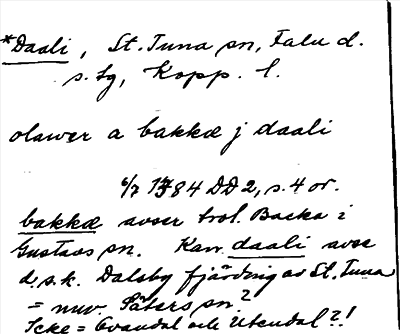 *Daali, St. Tuna sn, Falu d.
s. lg, Kopp. l.
olawer a bakkæ j daali
6/7 1384 DD 2, s. 4 or.
bakkæ avser trol. Backa i
Gustavs sn. Kan daali avse
d.s.k. Dalsby fjärding av St. Tuna
= nuv Säters sn?
Icke = Ovandal och Utendal?!